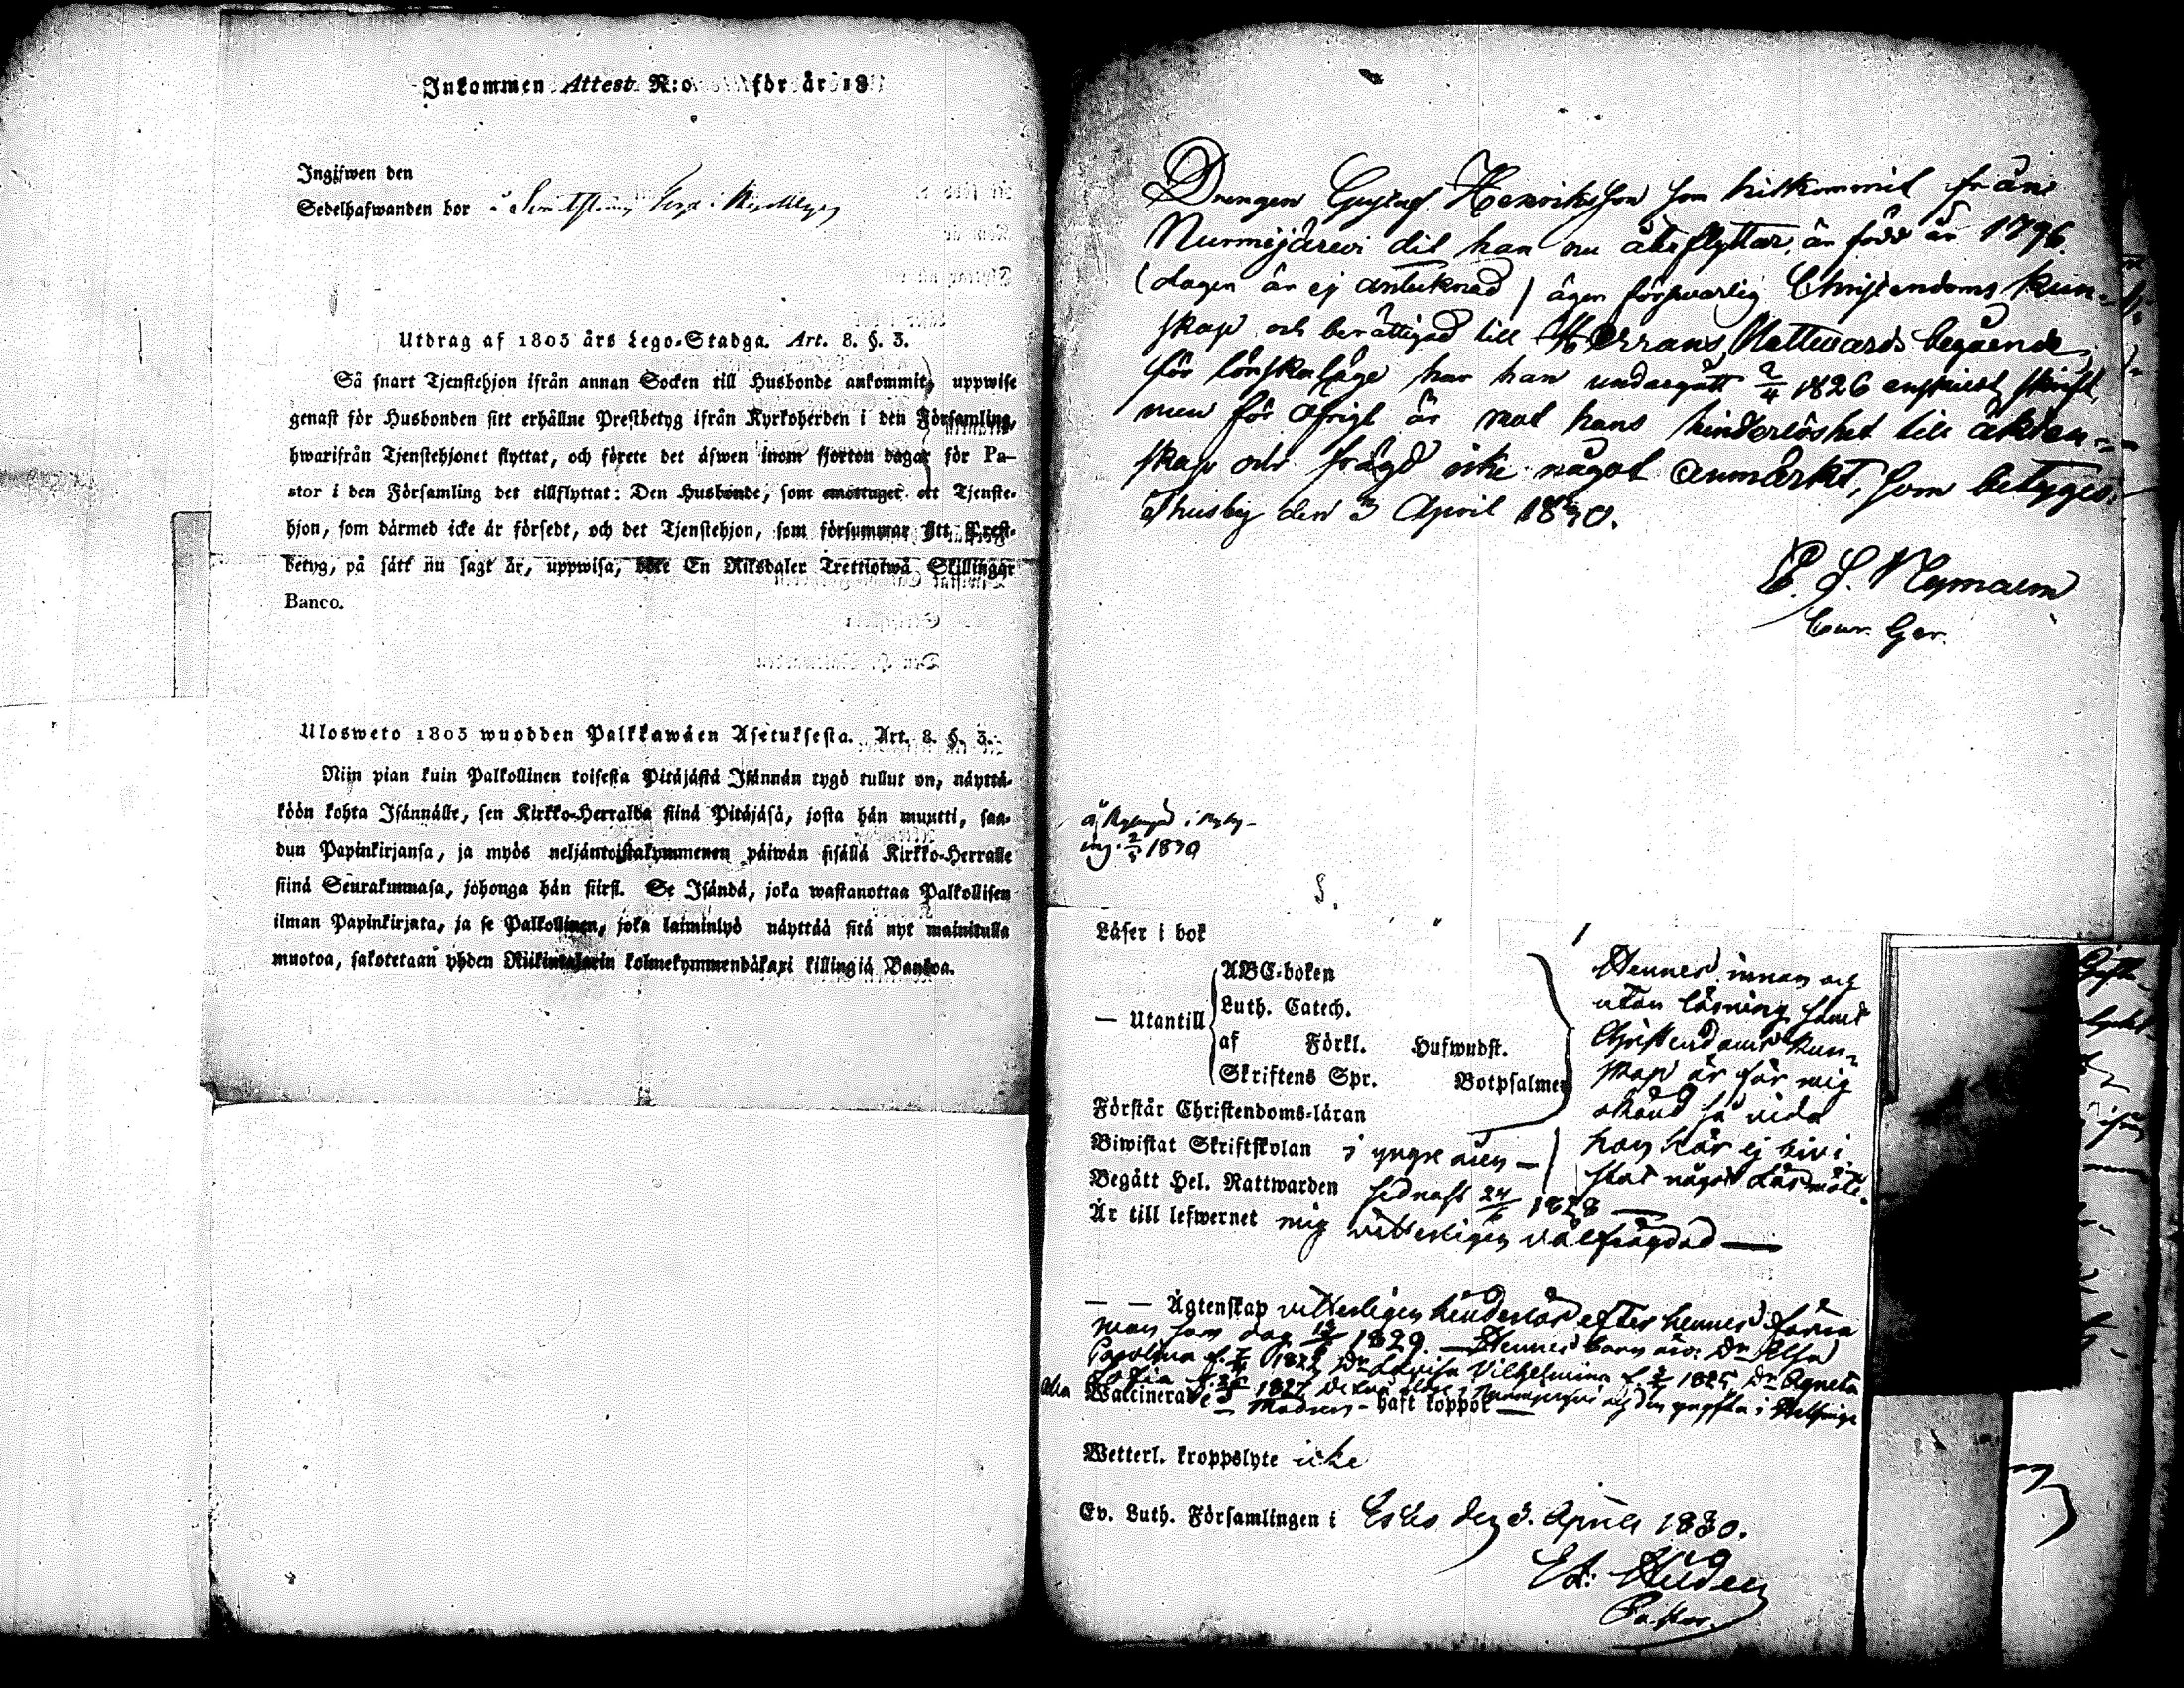 Inkommen Attest N:o för år 18
Ingifwen den
Sedelhafwanden bor
Utdrag af 1805 års Lego-Stadga. Art. 8. §. 3.
Så snart Tjenstehjon ifrån annan Socken till Husbonde ankommit, uppwise
genast för Husbonden sitt erhållne Prestbetyg ifrån Kyrkoherden i den Församling,
hwarifrån Tjenstehjonet flyttat, och förete det äfwen inom fjorton dagar för Pa-
stor i den Församling det tillflyttat: Den Husbonde, som emottager ett Tjenste-
hjon, som därmed icke är försedt, och det Tjenstehjon, som försummar att Prest-
betyg, på sätt nu sagt är, uppwisa, böte En Riksdaler Trettiotwå Skillingar
Banco.
Ulosweto 1805 wuodden Palkkawäen Asetuksesta. Art. 8. §. 3.
Niin pian kuin Palkollinen toisesta Pitäjästä Isännän tygö tullut on, näyttä-
köön kohta Isännälle, sen Kirkko-Herralda siinä Pitäjäsä, josta hän muutti, saa-
dun Papinkirjansa, ja myös neljäntoistakymmenen päiwän sisällä Kirkko-Herralle
siinä Seurakunnasa, johonga hän siirsi. Se Isändä, joka wastanottaa Palkollisen
ilman Papinkirjata, ja se Palkollinen, joka laiminlyö näyttää sitä nyt mainitulla
muotoa, sakotetaan yhden Riikintalarin kolmekymmendäkaxi killingiä Bankoa.
Drengen Gustaf Henriksson som hitkommit från
Nurmijärvi dit han nu återflyttar, är född år 1796
(dagen är ej antecknad) äger försvarlig Christendoms kun-
skap och berättigad till Herrans Nattvards begående,
för lönskaläge har han undergått 2/4 1826 enskildt skrift,
men för öfrigt är mot hans hinderlöshet till äkten-
skap och frägd icke något anmärkt, som betygas.
Thusby den 3 April 1830.
E. S. Nymalm
Cur. Ger.
1830
Läser i bok
ABC-boken
Luth. Catech.
— Utantill
af Förkl. Hufwudst.
Skriftens Spr. Botpsalmer
Hennes innan och
utan läsning samt
Christendoms kun-
skap är för mig
okänd så vida
hon här ej bivi-
stat något läsmöte.
Förstår Christendoms-läran
Biwistat Skriftskolan i yngre åren —
Begått Hel. Nattwarden sednast 24/6 1828 —
Är till lefwernet mig vitterligen välfrägdad —
— — Ägtenskap vitterligen hinderlös efter hennes förra
man som dog 1829. — Hennes barn äro: Dr Elsa
Carolina f. 1822, Dr Lovisa Vilhelmina f. 1825, Dr Agneta
Sofia f. 1827
Waccinerad haft koppor —
Wetterl. kroppslyte icke
Ev. Luth. Församlingen i Esbo den 3. April 1830.
Ed: Hildeen
Pastor.